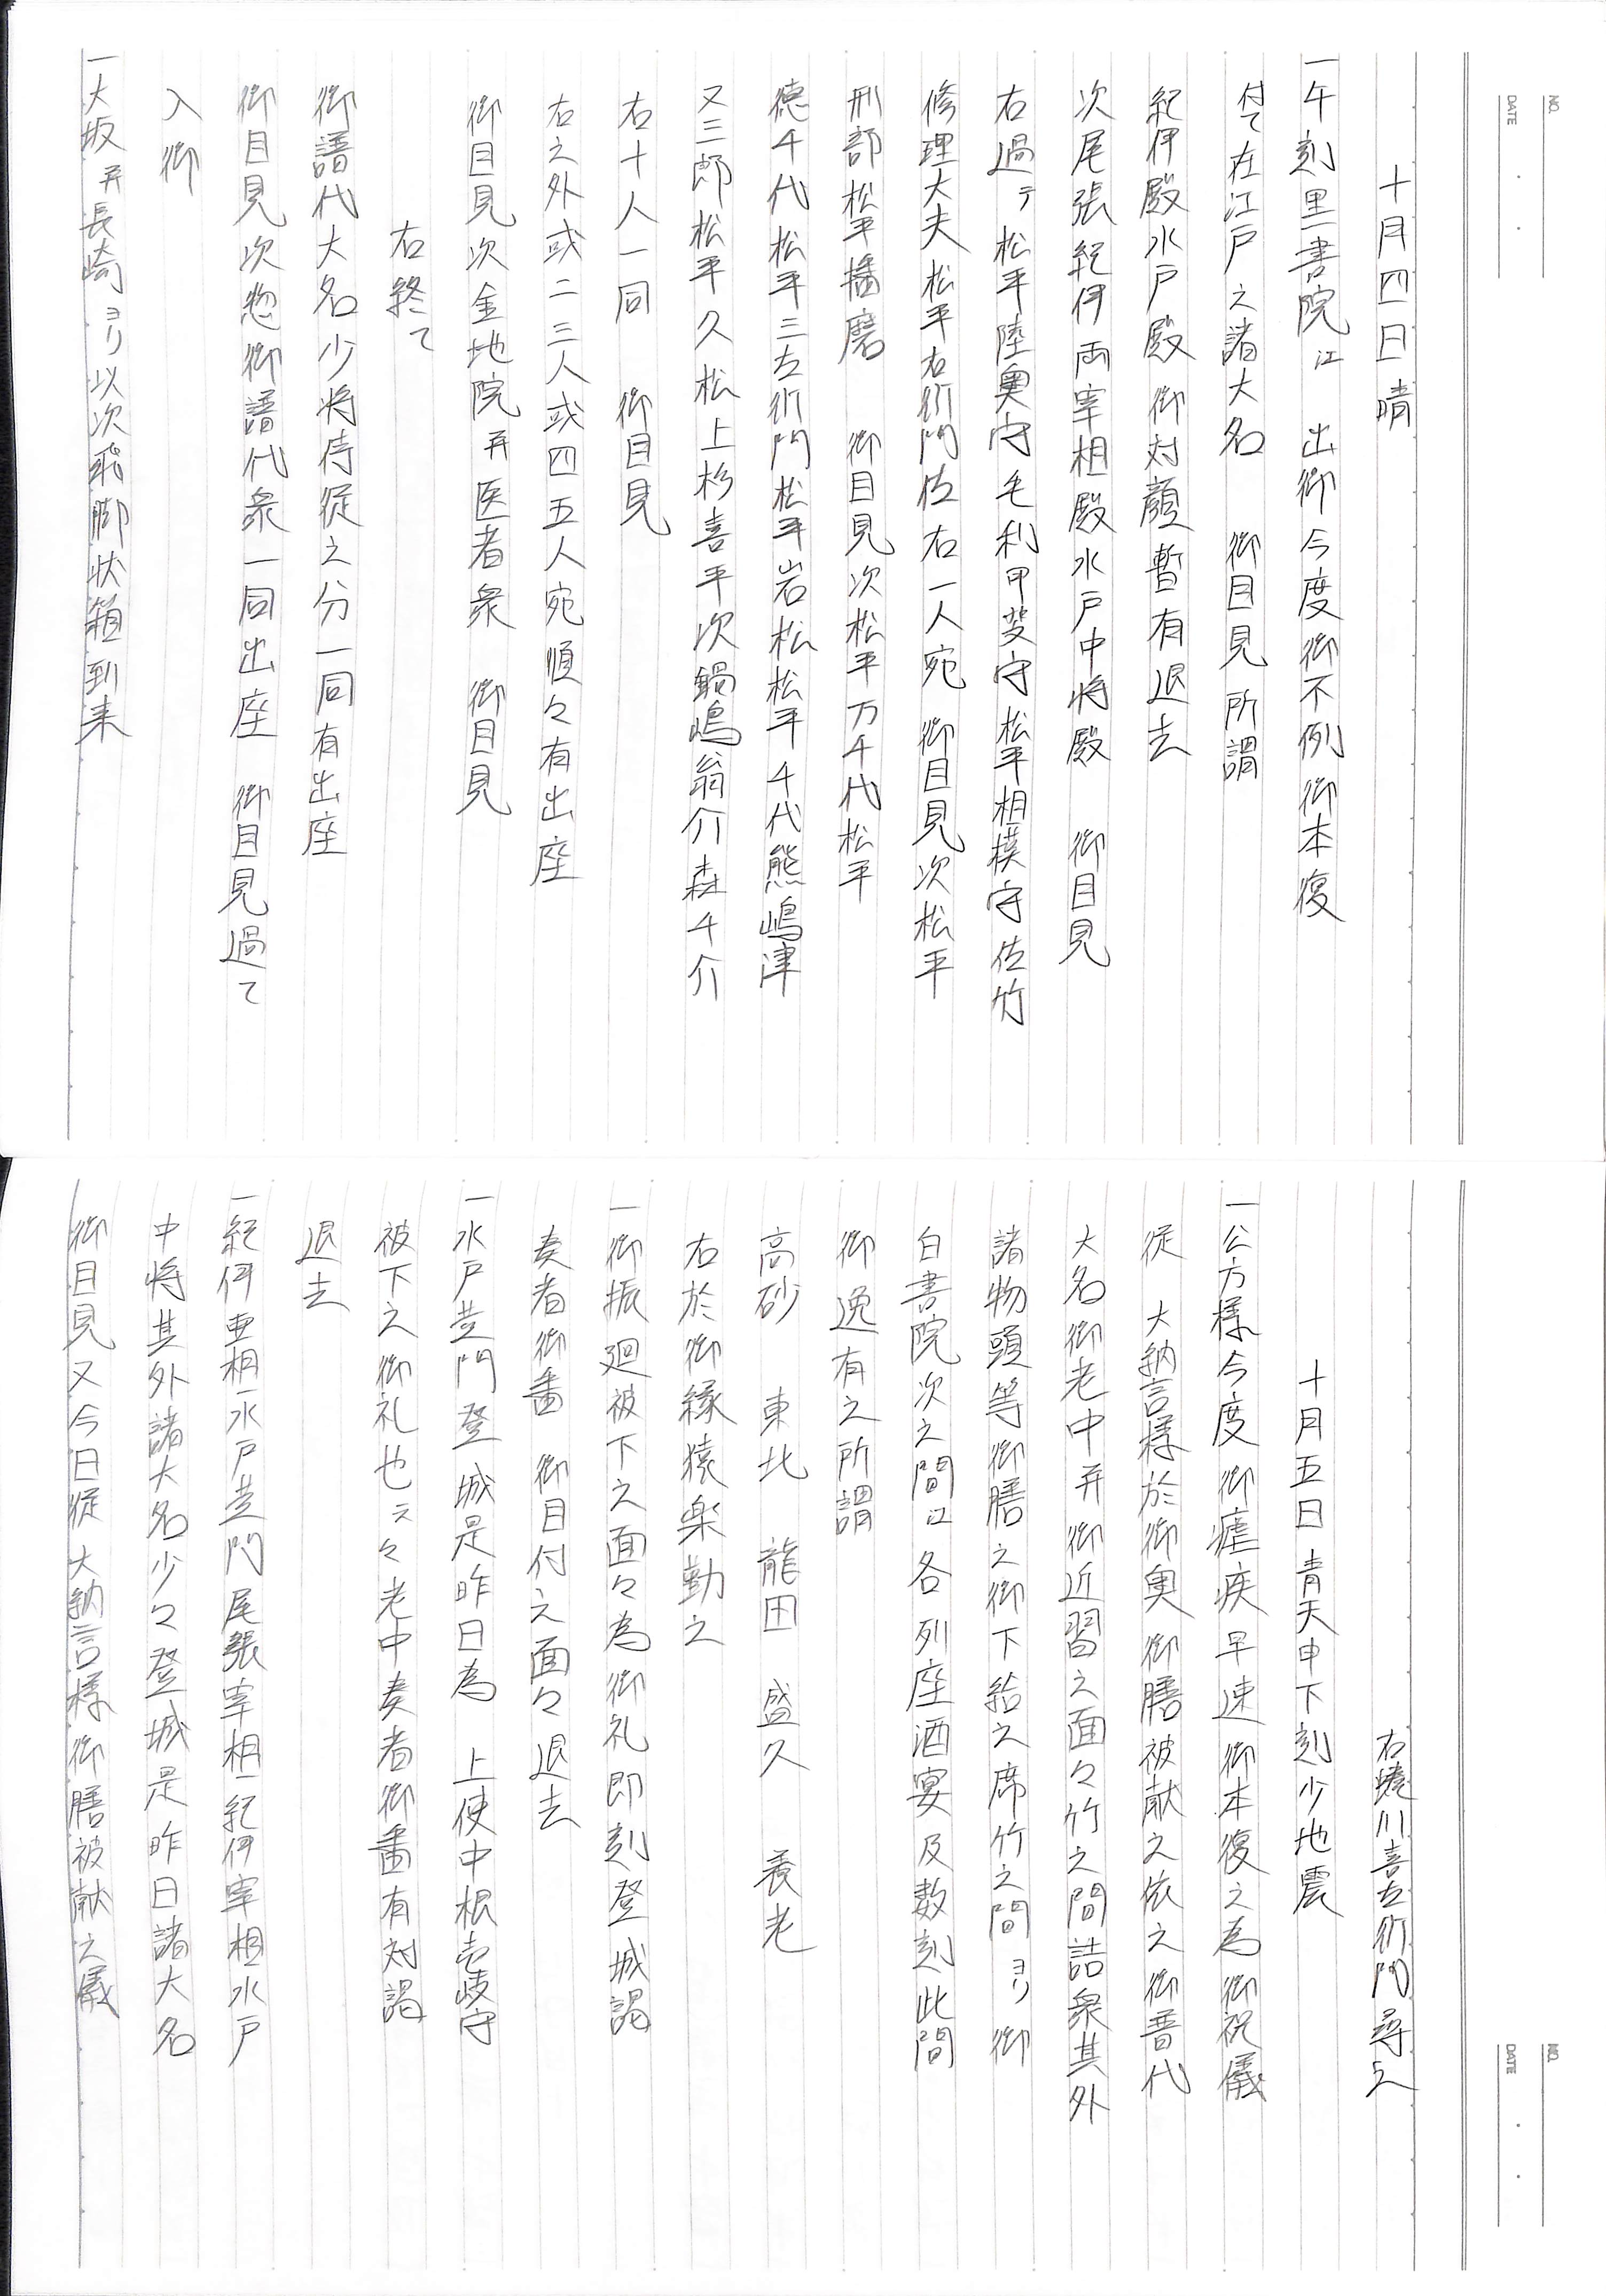 NO.
DATE
十月四日 晴
一午刻黒書院江 出御今度御不例御本復
付て在江戸之諸大名 御目見所謂
紀伊殿水戸殿御対顔暫有退去
次尾張紀伊両宰相殿水戸中将殿 御目見
右過テ松平陸奥守毛利甲斐守松平相模守佐竹
修理大夫松平右衛門佐右一人宛御目見次松平
刑部松平播磨 御目見次松平万千代松平
徳千代松平三左衛門松平岩松松平千代熊嶋津
又三郎松平久松上杉喜平次鍋嶋翁介森千介
右十人一同 御目見
右之外或二三人或四五人宛順々有出座
御目見次金地院并医者衆 御目見
右終て
御譜代大名少将侍従之分一同有出座
御目見次惣御譜代衆一同出座 御目見過て
入御
一大坂并長崎ヨリ以次飛脚状箱到来
NO.
DATE
右蜷川喜左衛門尋之
十月五日 青天申下刻少地震
一公方様今度御瘧疾早速御本復之為御祝儀
従 大納言様於御奥御膳被献之依之御普代
大名御老中并御近習之面々竹之間詰衆其外
諸物頭等御膳之御下給之席竹之間ヨリ御
白書院次之間江各列座酒宴及数刻此間
御逸有之所謂
高砂 東北 龍田 盛久 養老
右於御縁猿楽勤之
一御振廻被下之面々為御礼即刻登城謁
奏者御番 御目付之面々退去
一水戸黄門登城是昨日為 上使中根壱岐守
被下之御礼也云々老中奏者御番有対謁
退去
一紀伊亜相水戸黄門尾張宰相紀伊宰相水戸
中将其外諸大名少々登城是昨日諸大名
御目見又今日従大納言様御膳被献之儀